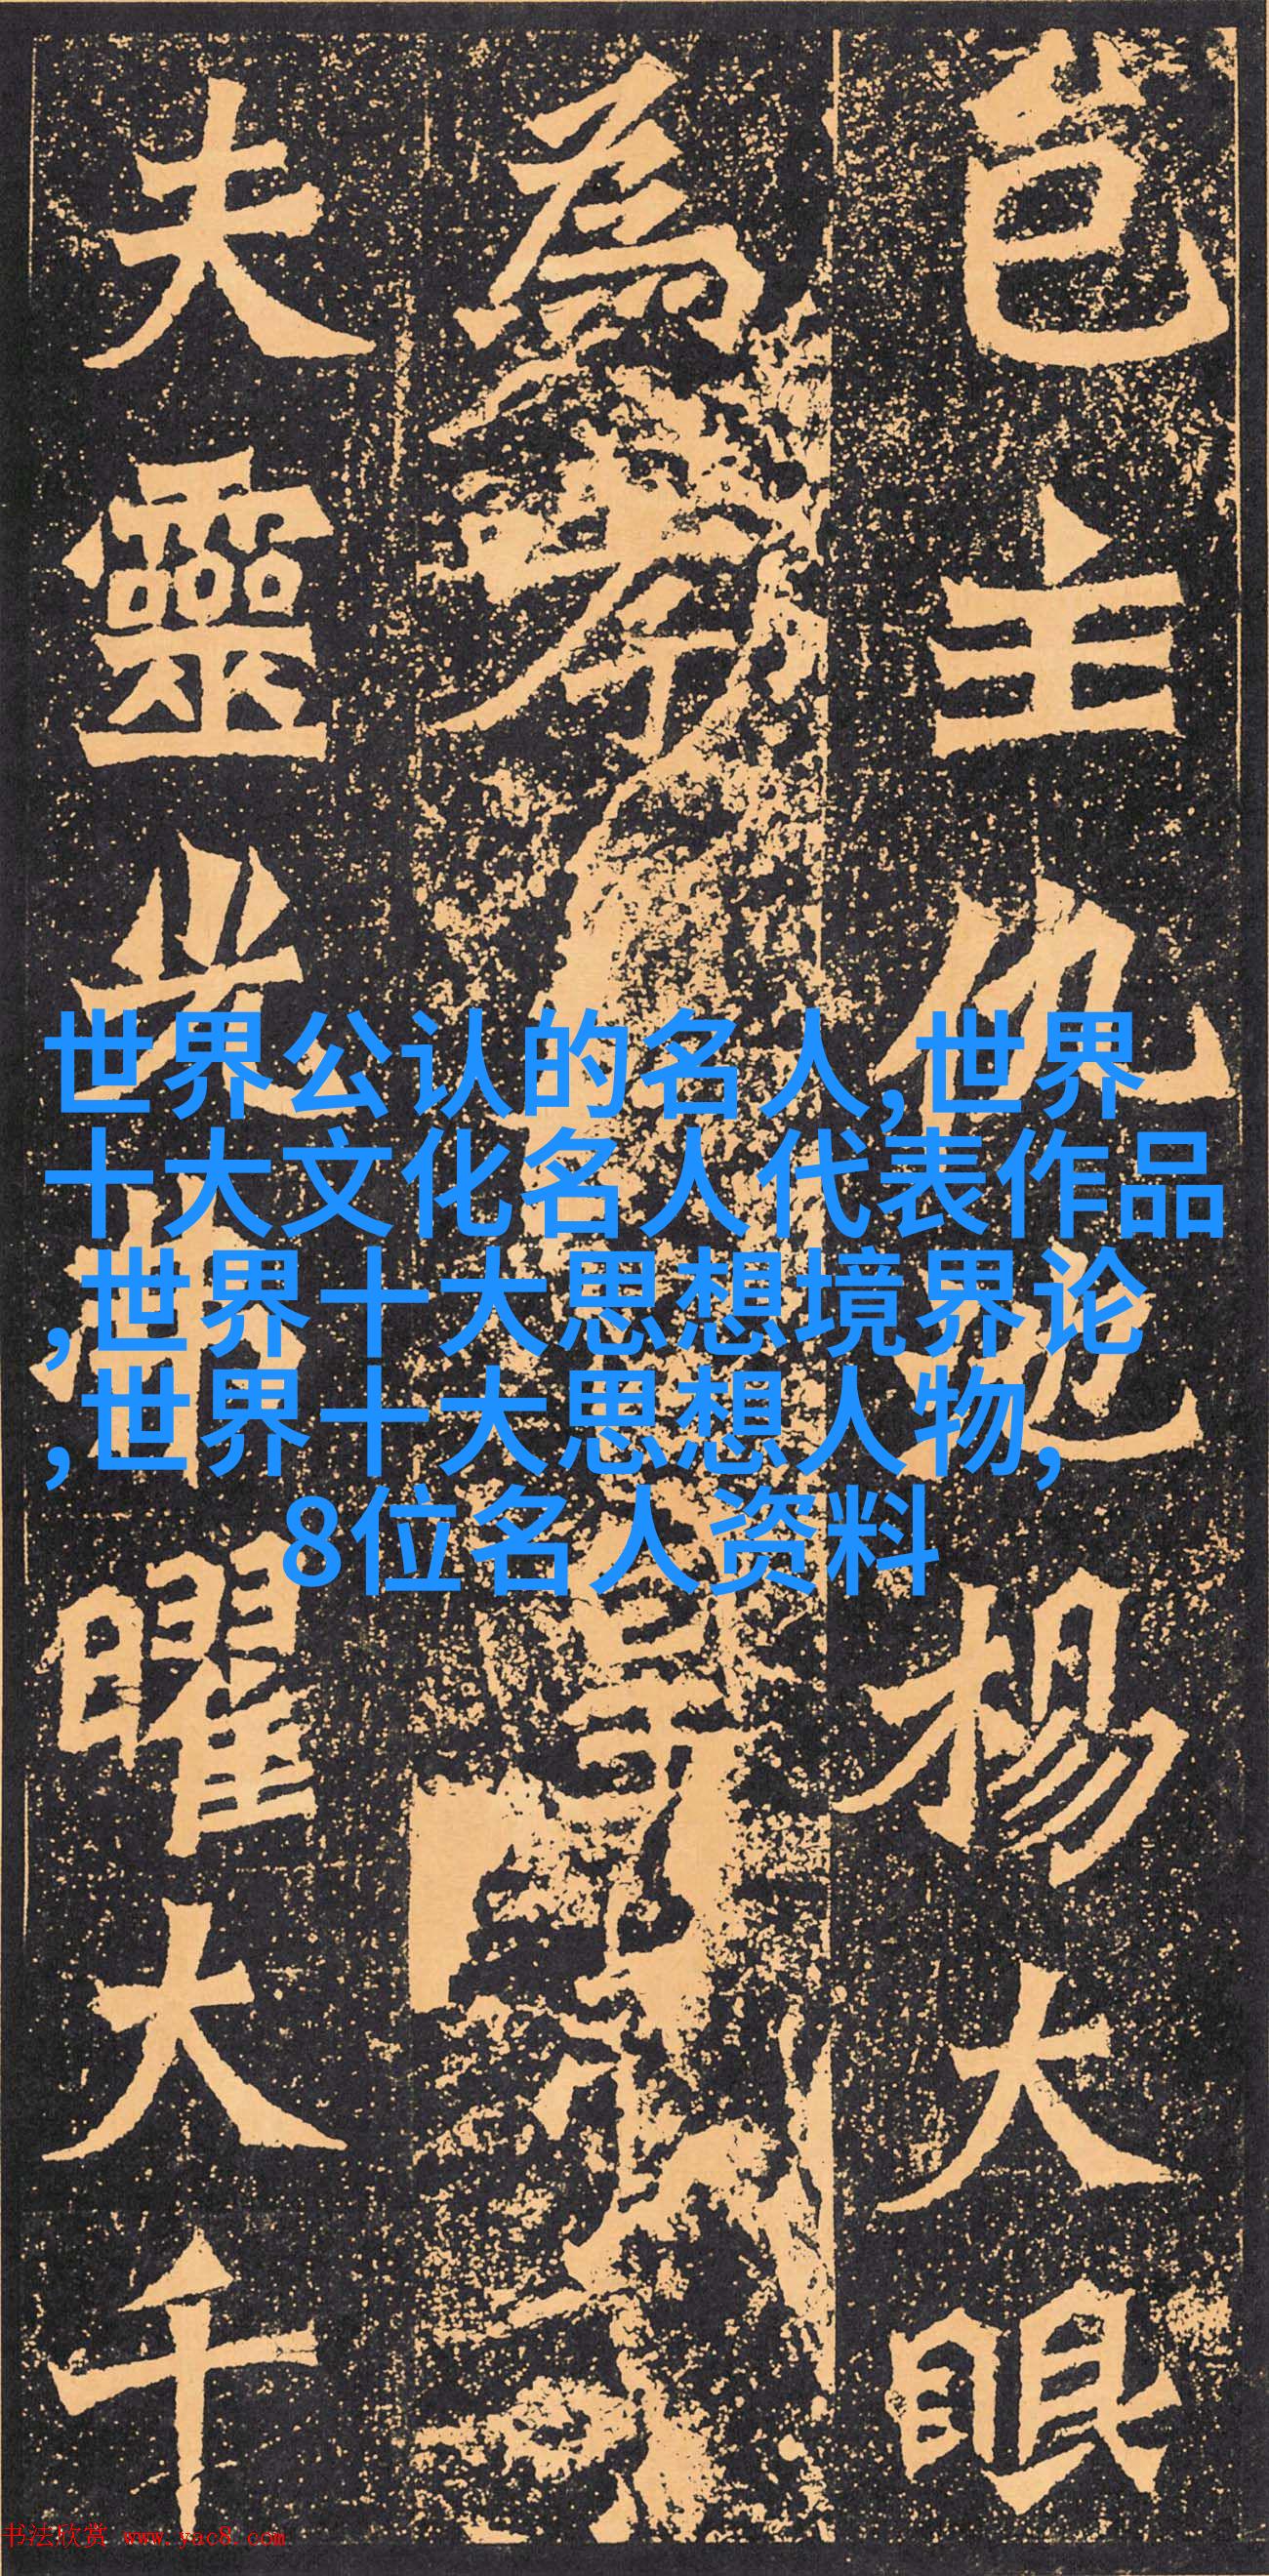 邑主仇池楊大眼
為孝
夫靈光弗曜大千
世界公认的名人,世界
十大文化名人代表作品
,世界十大思想境界论
,世界十大思想人物,
8位名人资料
书法欣赏 www.yac8.com